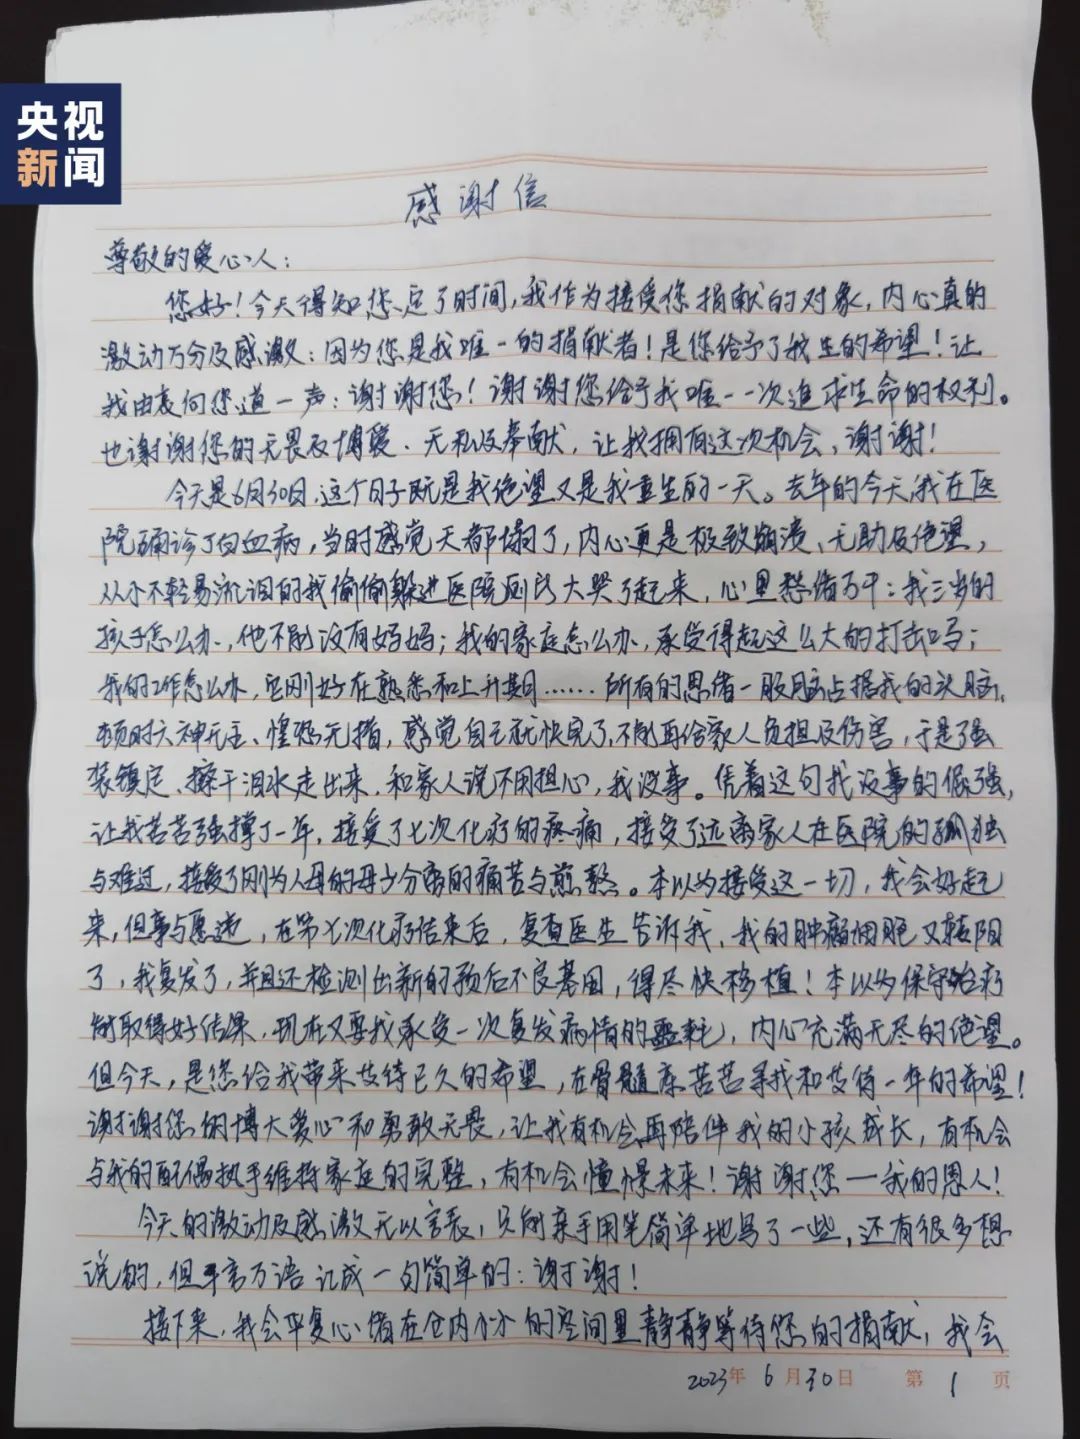 央视
新闻
感谢信
尊敬的爱心人：
您好！今天得知您定了时间，我作为接受您捐献的对象，内心真的
激动万分及感激：因为您是我唯一的捐献者！是您给予了我生的希望！让
我由衷向您道一声：谢谢您！谢谢您给予我唯一一次追求生命的权利。
也谢谢您的无畏及博爱、无私及奉献，让我拥有这次机会，谢谢！
今天是6月30日，这个日子既是我绝望又是我重生的一天。去年的今天，我在医
院确诊了白血病，当时感觉天都塌了，内心更是极致崩溃、无助及绝望，
从小不轻易流泪的我偷偷躲进医院厕所大哭了起来，心里愁绪万千：我三岁的
孩子怎么办，他不能没有妈妈；我的家庭怎么办，承受得起这么大的打击吗；
我的工作怎么办，它刚好在熟悉和上升期……所有的思绪一股脑占据我的头脑，
顿时六神无主、惶恐无措，感觉自己就快完了，不能再给家人负担及伤害，于是强
装镇定、擦干泪水走出来，和家人说不用担心，我没事。凭着这句我没事的倔强，
让我苦苦强撑了一年，接受了七次化疗的疼痛，接受了远离家人在医院的孤独
与难过，接受了刚为人母的母子分离的痛苦与煎熬。本以为接受这一切，我会好起
来，但事与愿违，在第七次化疗结束后，复查医生告诉我，我的肿瘤细胞又转阳
了，我复发了，并且还检测出新的预后不良基因，得尽快移植！本以为保守治疗
能取得好结果，现在又要我承受一次复发病情的噩耗，内心充满无尽的绝望。
但今天，是您给我带来期待已久的希望，在骨髓库苦苦寻找和等待一年的希望！
谢谢您的博大爱心和勇敢无畏，让我有机会再陪伴我的小孩成长，有机会
与我的配偶执手维持家庭的完整，有机会憧憬未来！谢谢您——我的恩人！
今天的激动及感激无以言表，只能亲手用笔简单地写了一些，还有很多想
说的，但千言万语汇成一句简单的：谢谢！
接下来，我会平复心绪在仓内小小的空间里静静等待您的捐献，我会
2023年 6月30日 第 1 页